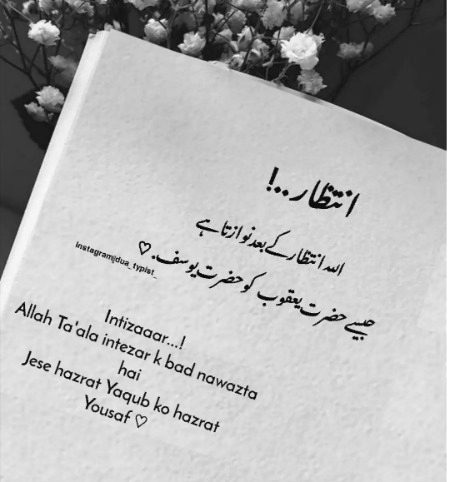 انتظار...!
اللہ انتظار کے بعد نوازتا ہے
جیسے حضرت یعقوب کو حضرت یوسف. ♡
Instagram|dua_typist_
Intizaaar...!
Allah Ta'ala intezar k bad nawazta
hai
Jese hazrat Yaqub ko hazrat
Yousaf ♡